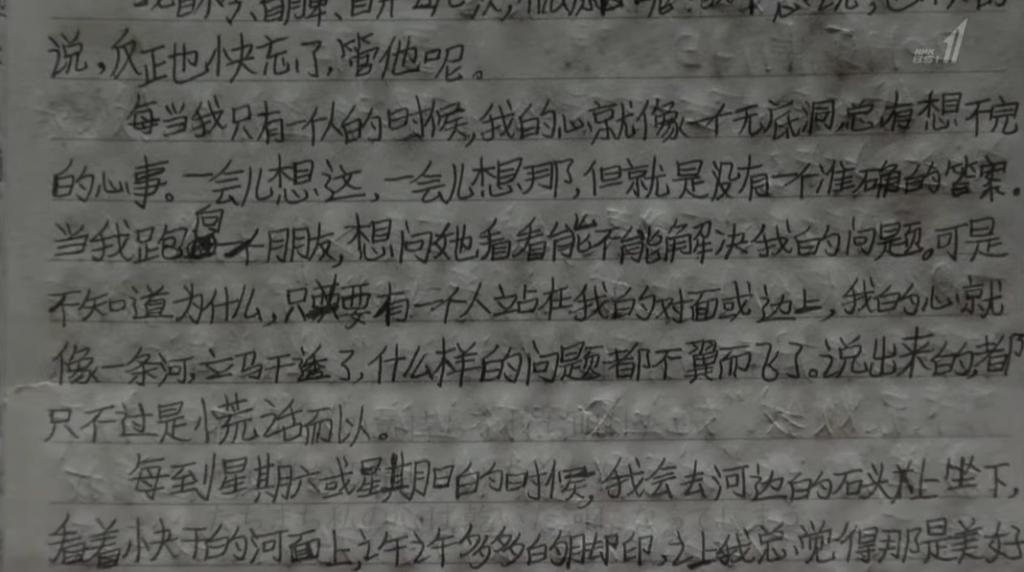 说,反正也快忘了,管他呢。
每当我只有一个人的时候,我的心就像一个无底洞,总有想不完
的心事。一会儿想这,一会儿想那,但就是没有一个准确的答案。
当我跑一个朋友,想问她看看能不能解决我的问题。可是
不知道为什么,只要有一个人站在我的对面或边上,我的心就
像一条河,立马干了,什么样的问题都不翼而飞了。说出来的都
只不过是小荒话而以。
每到星期六或星期日的时候,我会去河边的石头上坐下,
看着小快干的河面上,多多的脚印,我总觉得那是美好
NHK
1